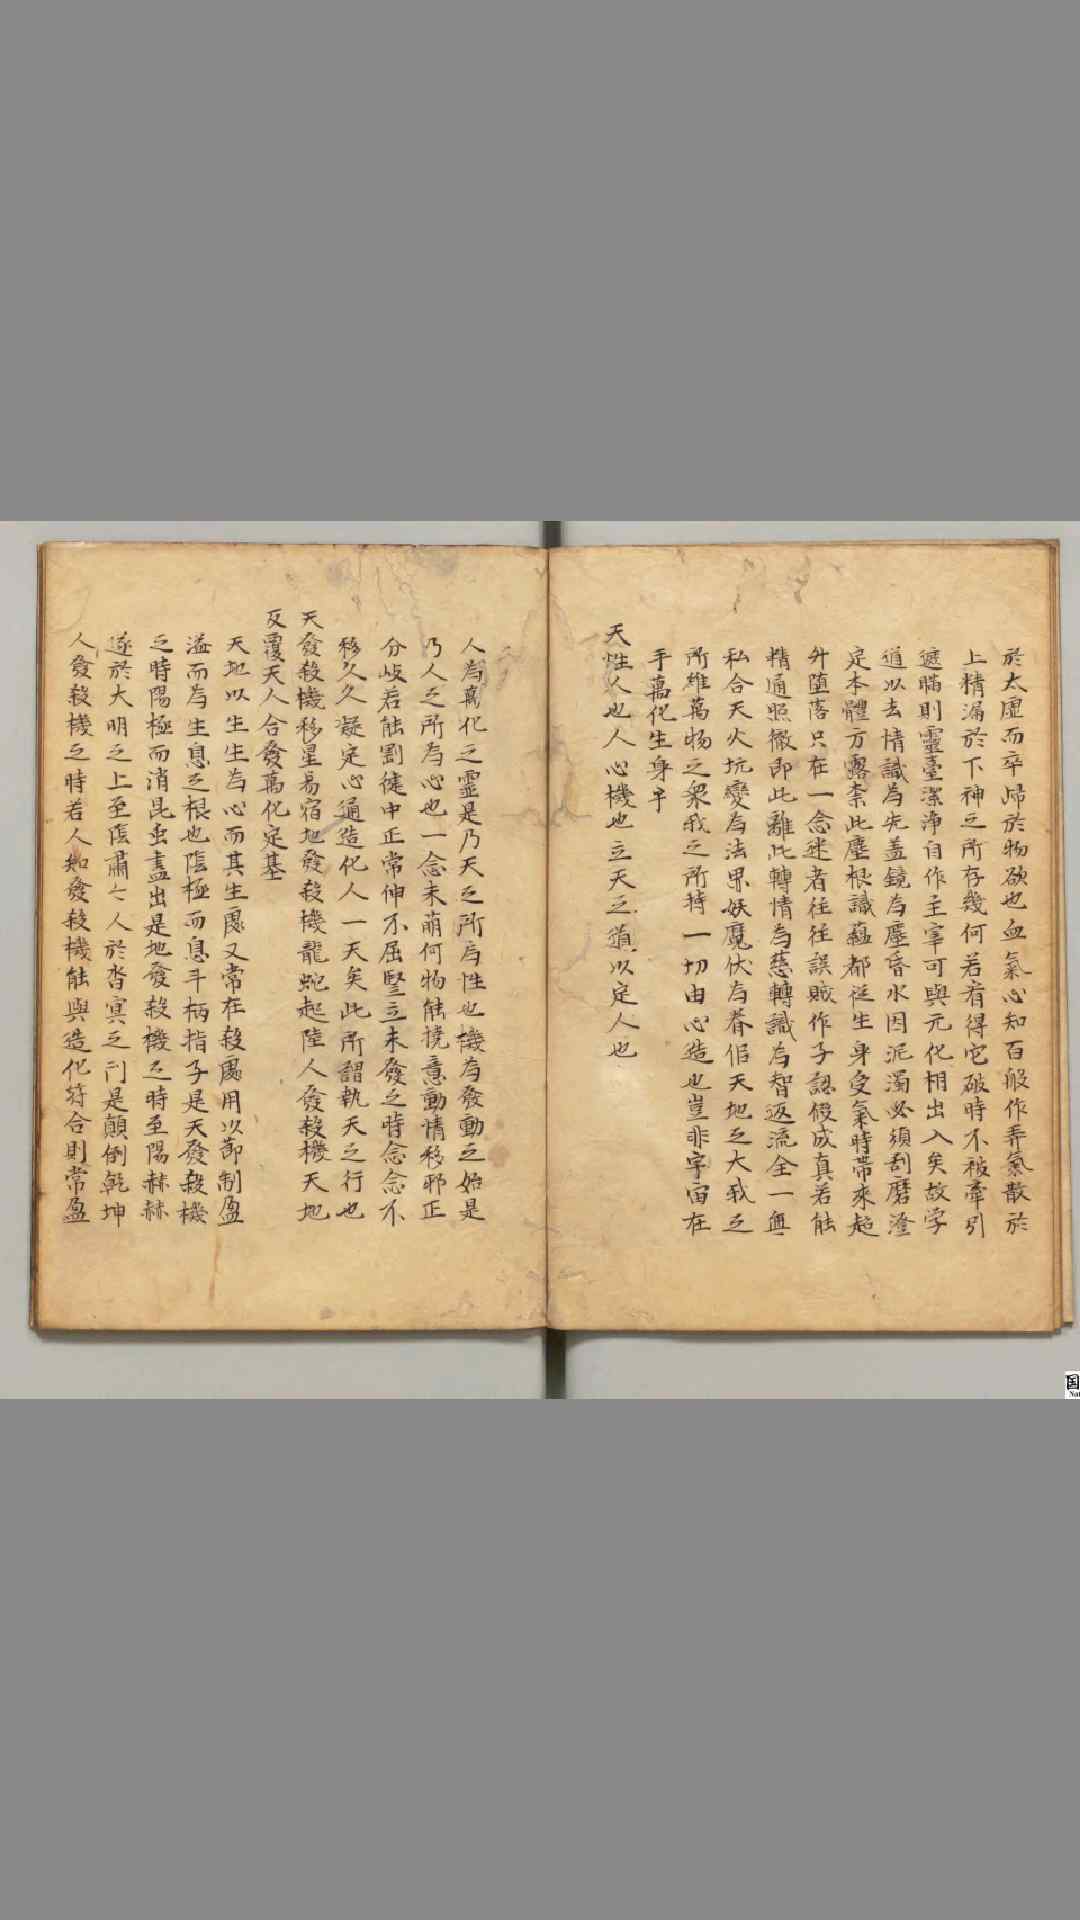 於太虛而卒歸於物欲也血氣心知百般作弄氣散於
上精漏於下神之所存幾何若看得它破時不被牽引
遮瞞則靈臺潔淨自作主宰可與元化相出入矣故学
道以去情識為先盖鏡為塵昏水因泥濁必須刮磨澄
定本體方露柰此塵根識蘊都從生身受氣時帶來超
升墮落只在一念迷者往往誤賊作子認假成真若能
精通照徹即此離此轉情為慈轉識為智返流全一無
私合天火坑變為法界妖魔伏為眷侣天地之大我之
所雄萬物之衆我之所持一切由心造也豈非宇宙在
手萬化生身乎
天性人也人心機也立天之道以定人也
人為萬化之靈是乃天之所為性也機為發動之始是
乃人之所為心也一念未萌何物能撓意動情移邪正
分岐若能劃徒中正常伸不屈豎立未發之時念念不
移久久凝定心通造化人一天矣此所謂執天之行也
天發殺機移星易宿地發殺機龍蛇起陸人發殺機天地
反覆天人合發萬化定基
天地以生生為心而其生處又常在殺處用以節制盈
溢而為生息之根也陰極而息斗柄指子是天發殺機
之時陽極而消昆虫盡出是地發殺機之時至陽赫赫
逐於大明之上至陰肅〻人於杳冥之门是顛倒乾坤
人發殺機之時若人知發殺機能與造化符合則常盈
国
Nat